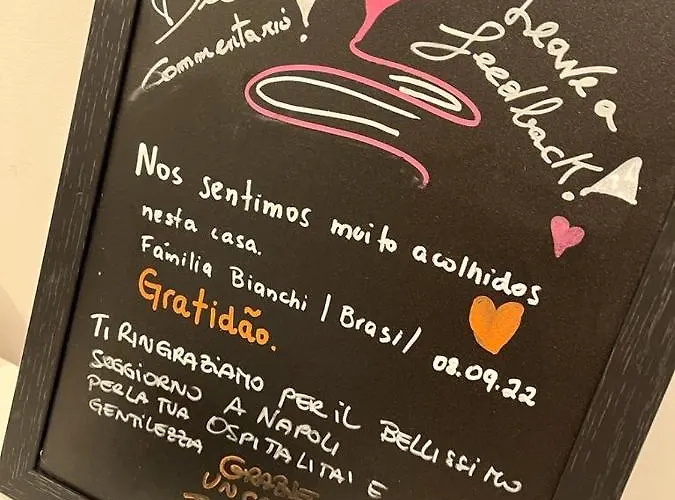 Commentario!
Leave a
feedback!
Nos sentimos muito acolhidos
nesta casa.
Família Bianchi / Brasil 08.09.22
Gratidão.
TI RINGRAZIAMO PER IL BELLISSIMO
SOGGIORNO A NAPOLI
PER LA TUA OSPITALITAI E
GENTILEZZIA GRAZIE